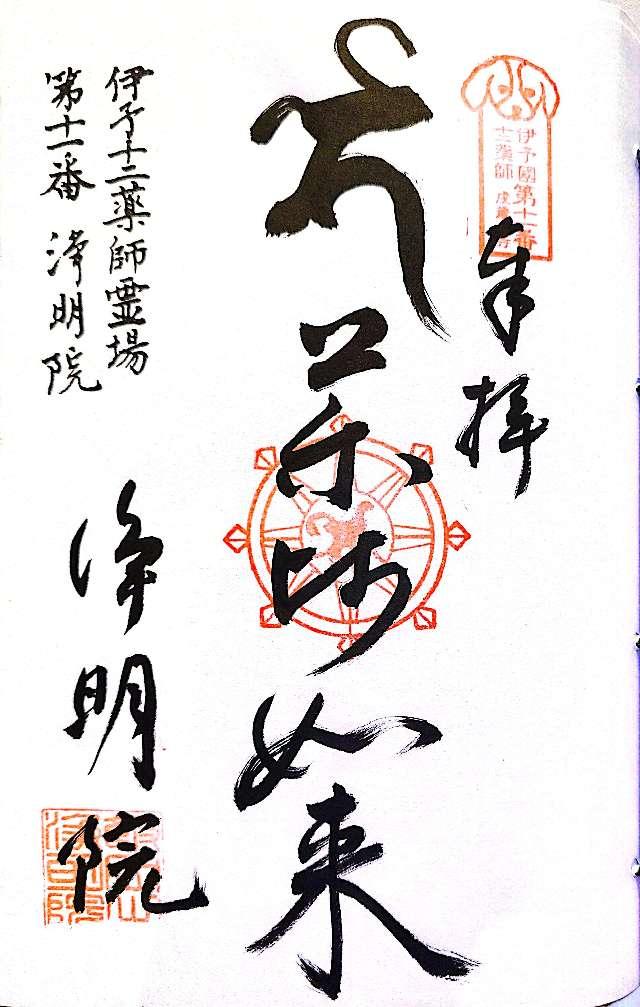 奉拝
伊予國第十一番
十二薬師
薬師如来
伊予十二薬師霊場
第十一番 浄明院
浄明院